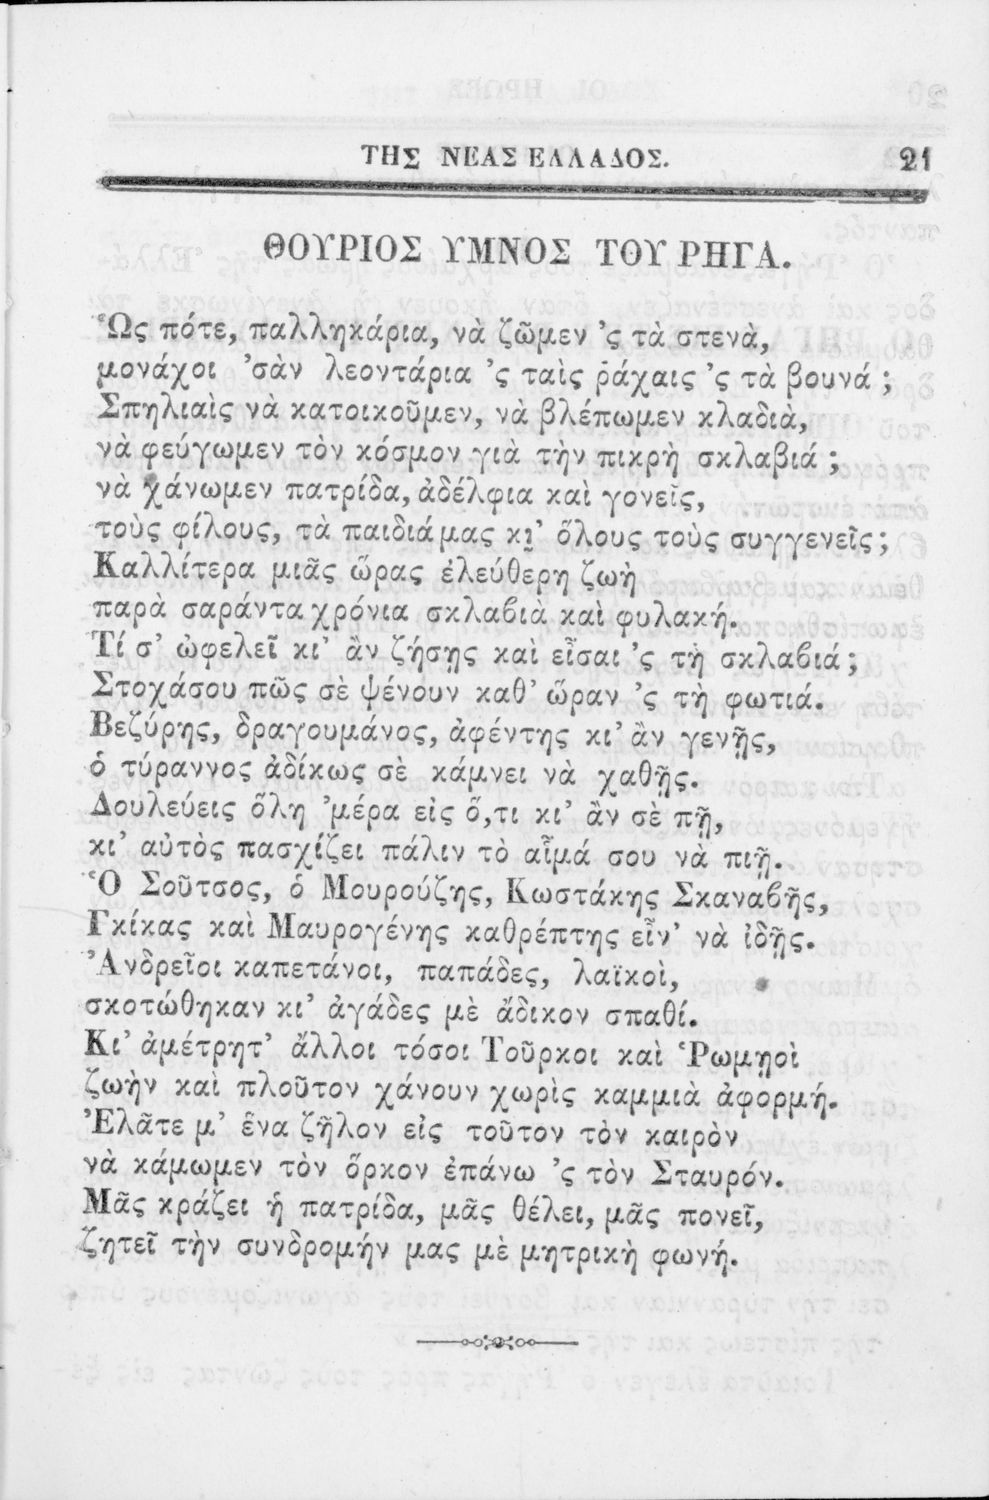 ΤΗΣ ΝΕΑΣ ΕΛΛΑΔΟΣ. 21
ΘΟΥΡΙΟΣ ΥΜΝΟΣ ΤΟΥ ΡΗΓΑ.
Ὥς πότε, παλληκάρια, νὰ ζῶμεν 'ς τὰ στενὰ,
μονάχοι 'σὰν λεοντάρια 'ς ταὶς ῥάχαις 'ς τὰ βουνά ;
Σπηλιαὶς νὰ κατοικοῦμεν, νὰ βλέπωμεν κλαδιὰ,
νὰ φεύγωμεν τὸν κόσμον γιὰ τὴν πικρὴ σκλαβιά ;
νὰ χάνωμεν πατρίδα, ἀδέλφια καὶ γονεῖς,
τοὺς φίλους, τὰ παιδιά μας κι' ὅλους τοὺς συγγενεῖς ;
Καλλίτερα μιᾶς ὥρας ἐλεύθερη ζωὴ
παρὰ σαράντα χρόνια σκλαβιὰ καὶ φυλακή.
Τί σ' ὠφελεῖ κι' ἂν ζήσῃς καὶ εἶσαι 'ς τὴ σκλαβιά ;
Στοχάσου πῶς σὲ ψένουν καθ' ὥραν 'ς τὴ φωτιά.
Βεζύρης, δραγουμάνος, ἀφέντης κι' ἂν γενῇς,
ὁ τύραννος ἀδίκως σὲ κάμνει νὰ χαθῇς.
Δουλεύεις ὅλη 'μέρα εἰς ὅ,τι κι' ἂν σὲ πῇ,
κι' αὐτὸς πασχίζει πάλιν τὸ αἷμά σου νὰ πιῇ.
Ὁ Σοῦτσος, ὁ Μουρούζης, Κωστάκης Σκαναβῆς,
Γκίκας καὶ Μαυρογένης καθρέπτης εἶν' νὰ ἰδῇς.
Ἀνδρεῖοι καπετάνοι, παπάδες, λαϊκοὶ,
σκοτώθηκαν κι' ἀγάδες μὲ ἄδικον σπαθί.
Κι' ἀμέτρητ' ἄλλοι τόσοι Τοῦρκοι καὶ Ῥωμῃοὶ
ζωὴν καὶ πλοῦτον χάνουν χωρὶς καμμιὰ ἀφορμή.
Ἐλᾶτε μ' ἕνα ζῆλον εἰς τοῦτον τὸν καιρὸν
νὰ κάμωμεν τὸν ὅρκον ἐπάνω 'ς τὸν Σταυρόν.
Μᾶς κράζει ἡ πατρίδα, μᾶς θέλει, μᾶς πονεῖ,
ζητεῖ τὴν συνδρομήν μας μὲ μητρικὴ φωνή.